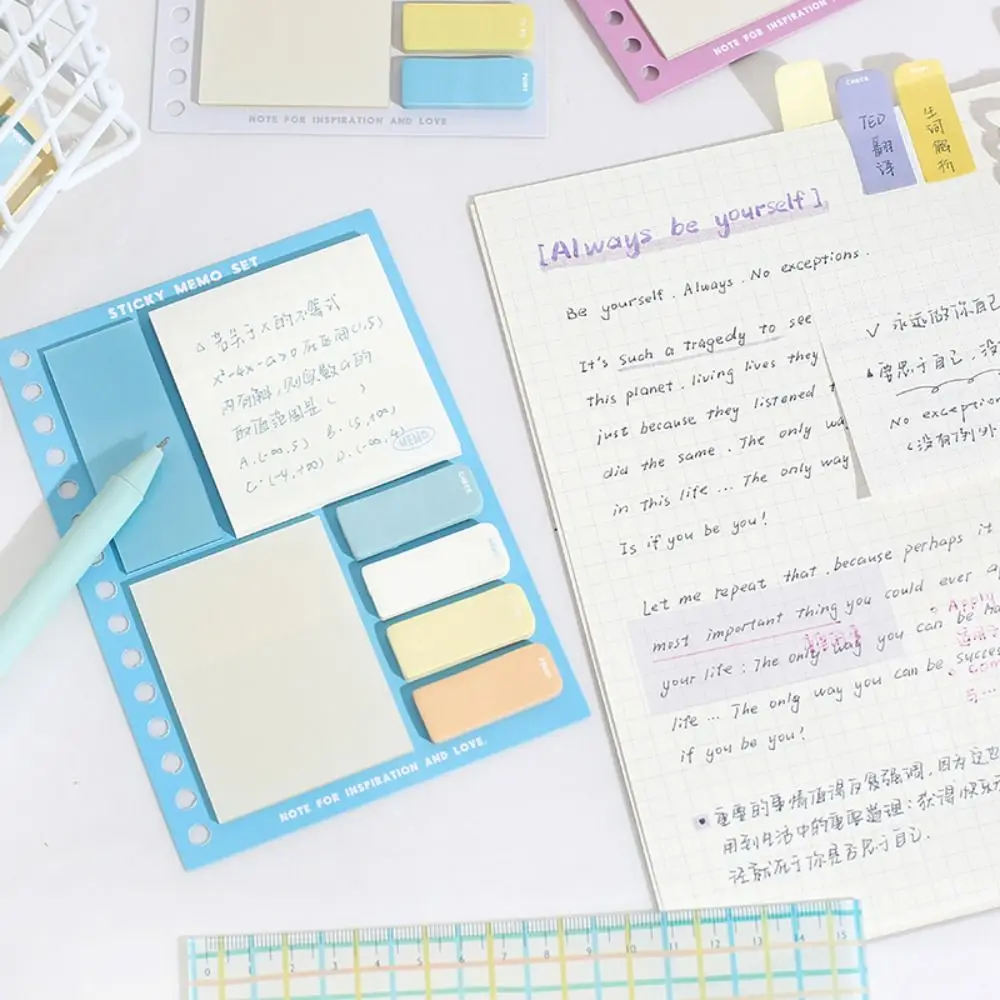 NOTE FOR INSPIRATION AND LOVE
NOTE FOR INSPIRATION
STICKY MEMO SET
△ 若关于x的不等式
x²-4x-a>0在区间(1,5)
内有解,则实数a的
取值范围是( )
A.(-∞,5) B.(5,+∞)
C.(-4,+∞) D.(-∞,4)
MEMO
NOTE FOR INSPIRATION AND LOVE.
TED
翻
译
生
词
解
析
[Always be yourself]
Be yourself. Always. No exceptions.
It's such a tragedy to see
this planet. living lives they
just because they listened
did the same. The only wa
in this life ... The only way
Is if you be you!
∨ 永远做你自己
▲ 要忠于自己,没
No exception
(没有例外
Let me repeat that. because perhaps it
most important thing you could ever a
your life: The only way you can be ha
life ... The only way you can be succes
if you be you!
Apply
重要的事情值得反复强调,因为这也
用到生活中的重要道理:获得快乐
径就在于你是否忠于自己.
0 1 2 3 4 5 6 7 8 9 10 11 12 13 14 15